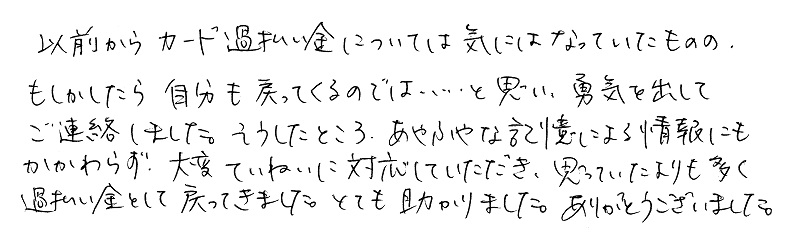 以前から カード過払い金については 気にはなっていたものの、
もしかしたら 自分も 戻ってくるのでは……と思い、勇気を出して
ご連絡しました。そうしたところ、あやふやな記憶による情報にも
かかわらず、大変 ていねいに 対応していただき、思っていたよりも多く
過払い金として 戻ってきました。とても 助かりました。ありがとうございました。